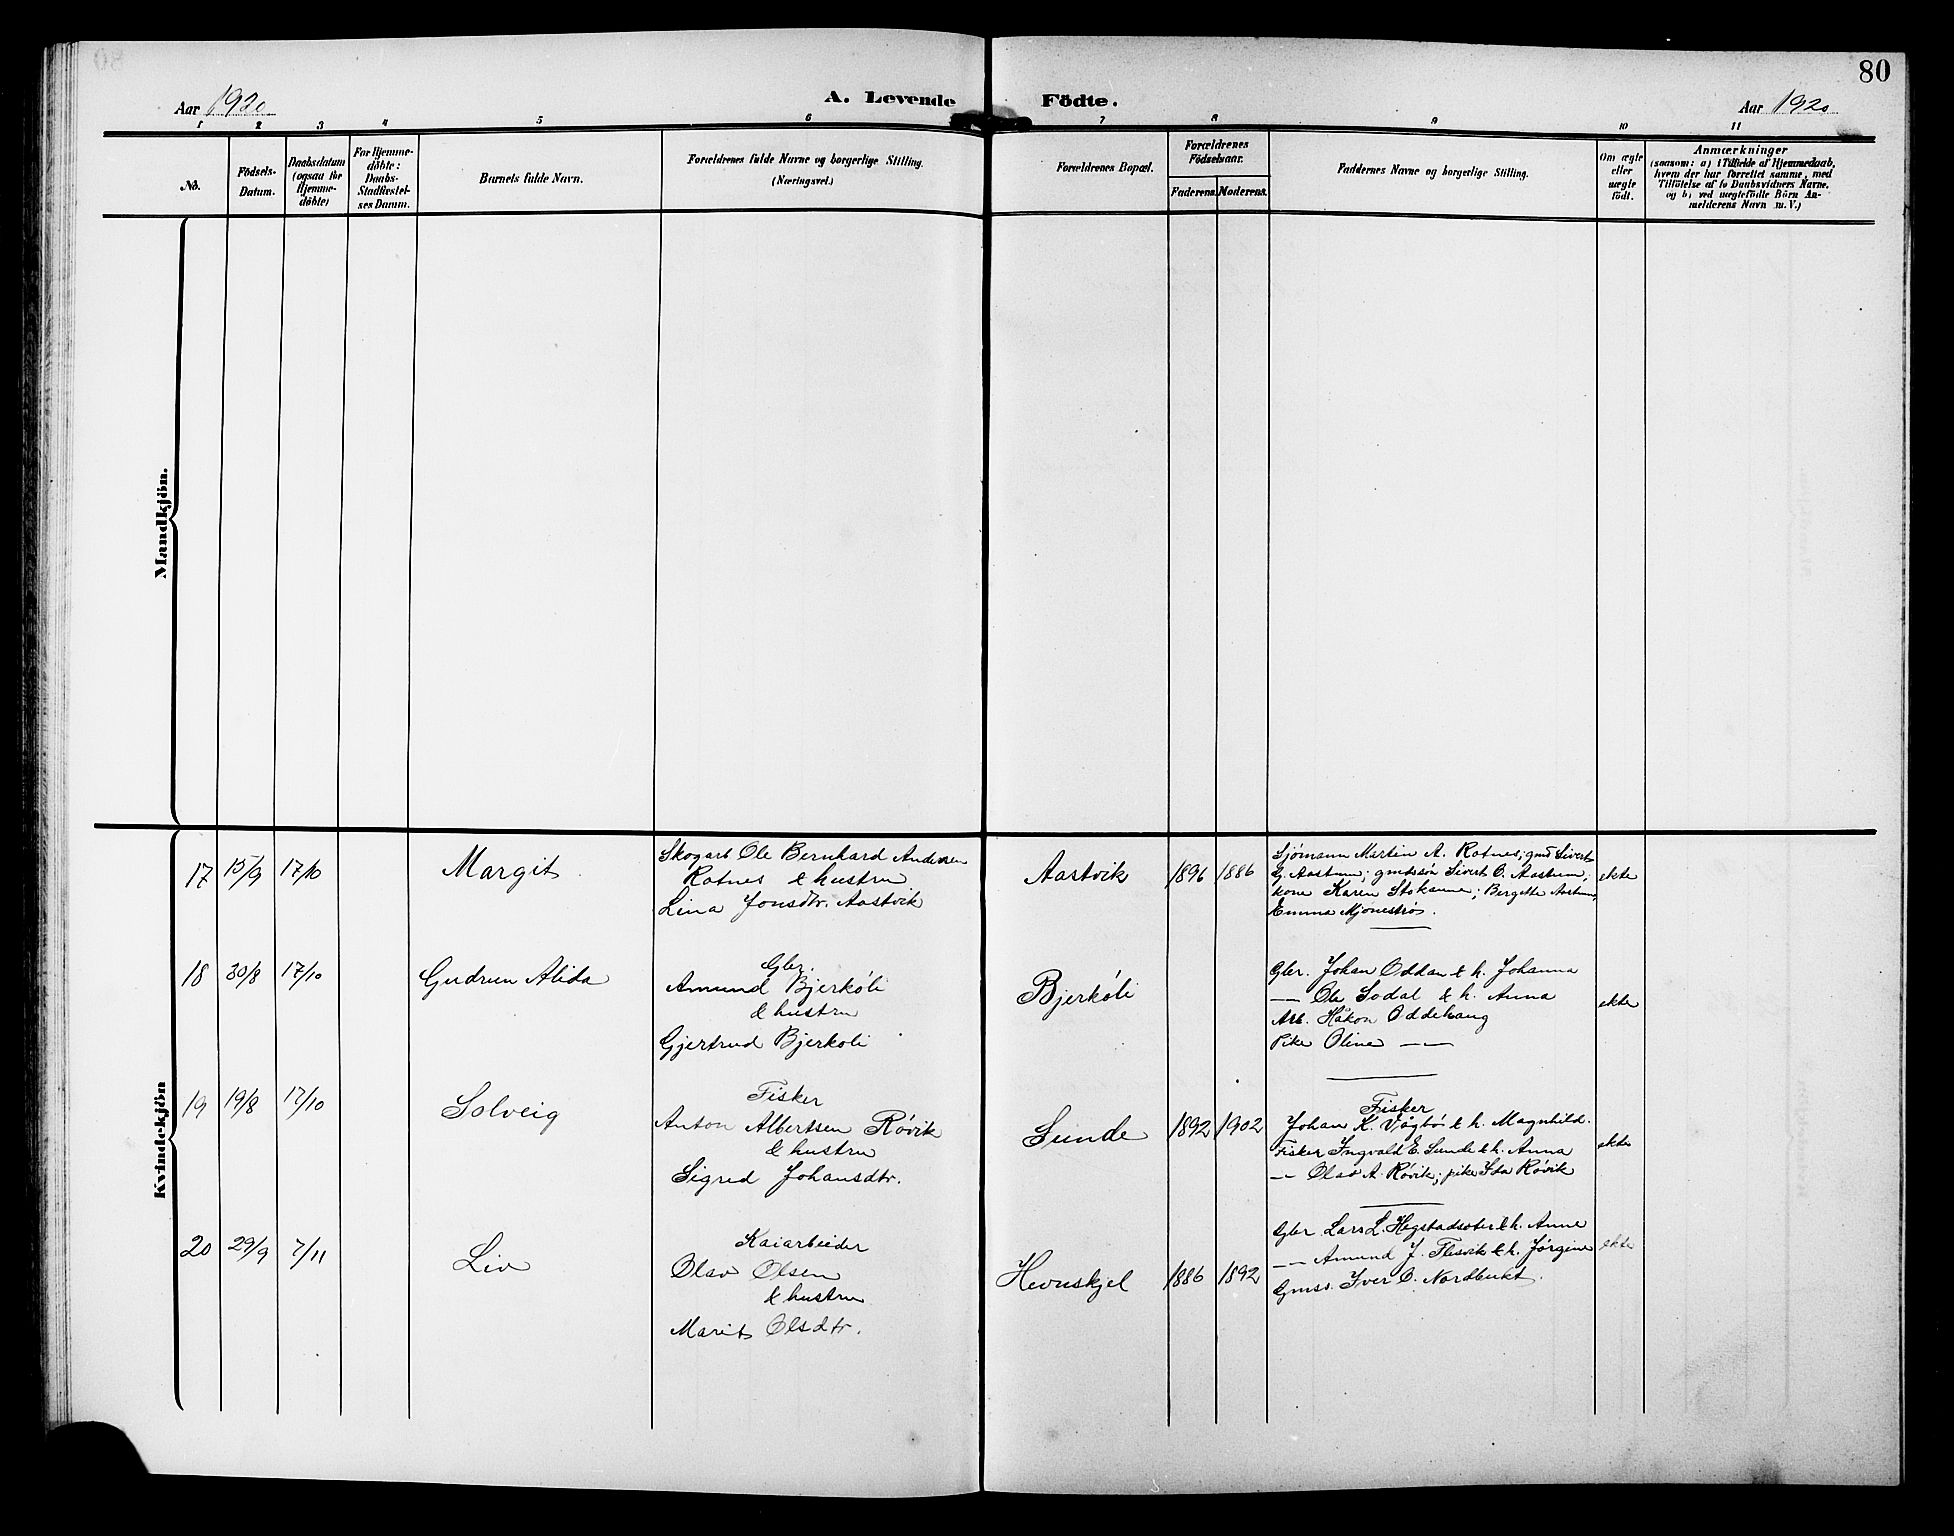 80
Aar 1920
A. Levende Födte.
Aar 1920
1 2 3 4 5 6 7 8 9 10 11
No.
Födsels-
Datum.
Daabsdatum
(ogsaa for
Hjemme-
döbte)
For Hjemme-
döbte:
Daabs-
Stadfæstel-
ses Datum.
Barnets fulde Navn.
Forældrenes fulde Navne og borgerlige Stilling.
(Næringsvei.)
Forældrenes Bopæl.
Forældrenes
Födselsaar.
Faderens. Moderens.
Faddernes Navne og borgerlige Stilling.
Om ægte
eller
uægte
födt.
Anmærkninger
(saasom: a) i Tilfælde af Hjemmedaab,
hvem der har forrettet samme, med
Tilföielse af to Daabsvidners Navne,
og b) ved uægtefödte Börn An-
melderens Navn m. V.)
Mandkjön.
Kvindekjön
17 15/9 17/10
Margit
Skogarb Ole Bernhard Andersen
Rotnes & hustru
Lina Jonsdtr. Aastvik
Aastvik
1896 1886
Sjømann Martin A. Rotnes; gmd Sivert
G. Aastum; gmdssøn Sivert O. Aastum;
kone Karen Stoksund; Bergitte Aastum,
Emma Mjønestrø.
ekte
18 30/8 17/10
Gudrun Alida
Gbr.
Amund Bjerkøli
& hustru
Gjertrud Bjerkøli
Bjerkøli
Gbr. Johan Oddan & h. Johanna
— Ole Sodal & h. Anna
Arb. Håkon Oddehaug
Pike Oline ——
ekte
19 19/8 17/10
Solveig
Fisker
Anton Albertsen Røvik
& hustru
Sigrid Johansdtr.
Sunde
1892 1902
Fisker
Johan K. Vågbø & h. Magnhild.
Fisker Ingvald E. Sunde & h. Anna
— Olav A. Røvik; pike Ida Røvik
ekte
20 29/9 7/11
Liv
Kaiarbeider
Olav Olsen
& hustru
Marit Olsdtr.
Hevnskjel
1886 1892
Gbr Lars L. Hegstadseter & h. Anne
—— Amund J. Flesvik & h. Jørgine
Gmss. Iver O. Nordbukt.
ekte